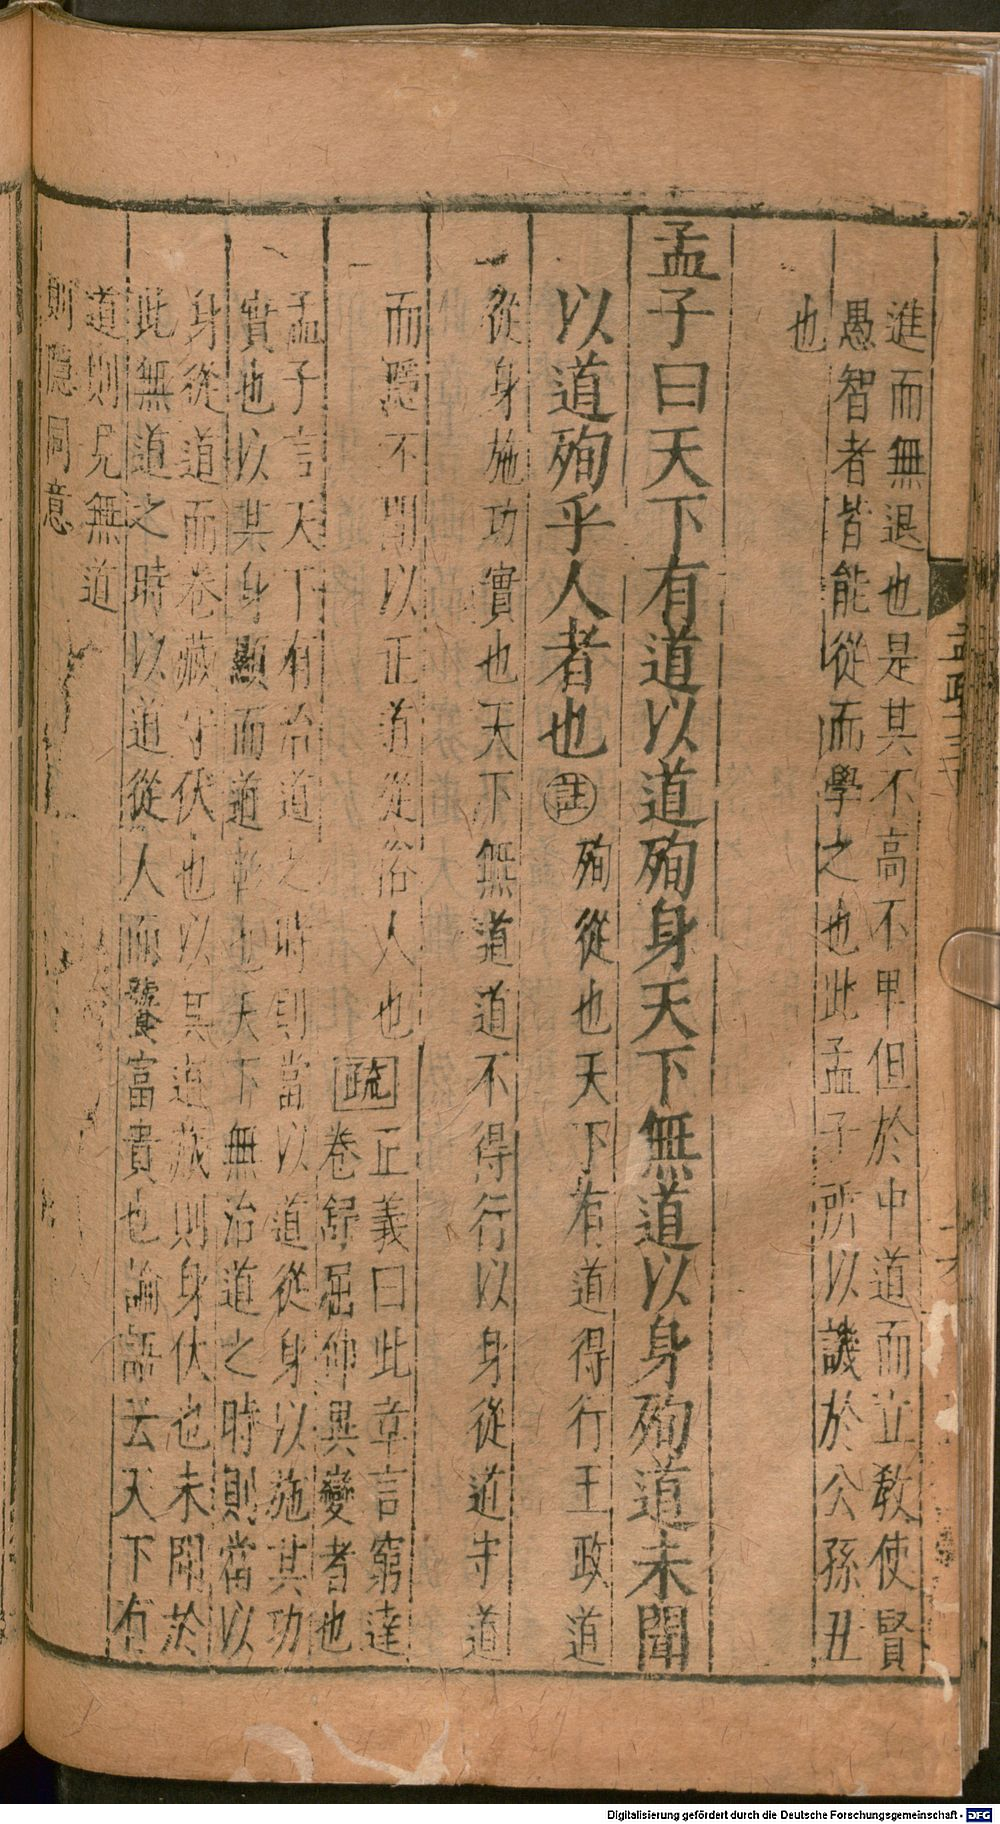 進而無退也是其不高不甲但於中道而立教使賢
愚智者皆能從而學之也此孟子所以譏於公孫丑
也
孟子曰天下有道以道殉身天下無道以身殉道未聞
以道殉乎人者也註殉從也天下有道得行王政道
從身施功實也天下無道道不得行以身從道守道
而隱不聞以正道從俗人也疏正義曰此章言窮達
卷舒屈伸異變者也
孟子言天下有治道之時則當以道從身以施其功
實也以其身顯而道彰也天下無治道之時則當以
身從道而卷藏守伏也以其道藏則身伏也未聞於
此無道之時以道從人而饕富貴也論語云天下有
道則見無道
則隱同意
Digitalisierung gefördert durch die Deutsche Forschungsgemeinschaft - DFG